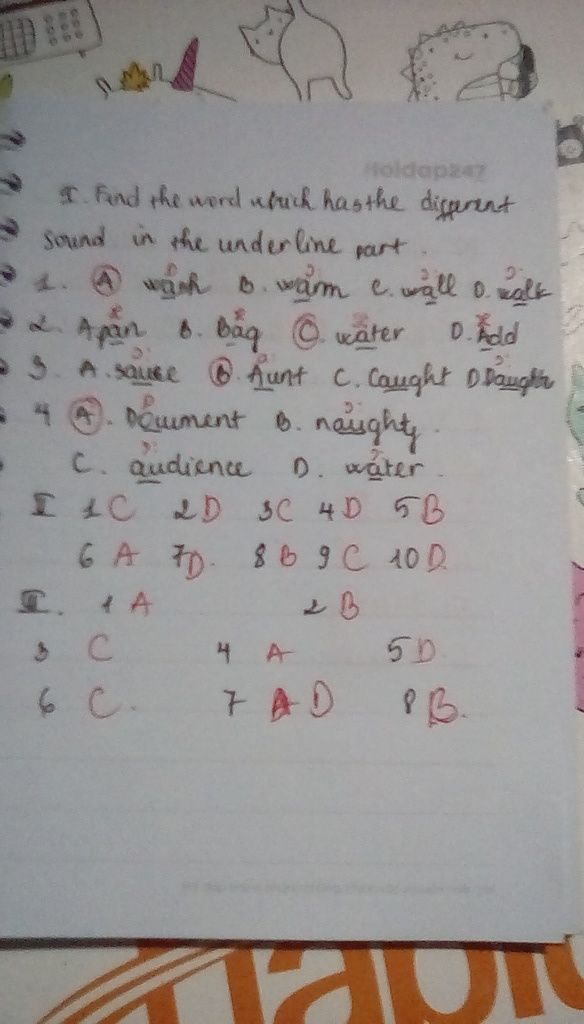 Hoidap247
I. Find the word which has the different
sound in the underline part.
1. A wash B. warm C. wall D. walk
2. A pan B. Bag C. water D. Add
3. A. sauce B. Aunt C. Caught D Daughter
4 A. Document B. naughty.
C. audience D. water.
II 1 C 2 D 3 C 4 D 5 B
6 A 7 D. 8 B 9 C 10 D
III. 1 A 2 B
3 C 4 A 5 D
6 C. 7 A D 8 B.